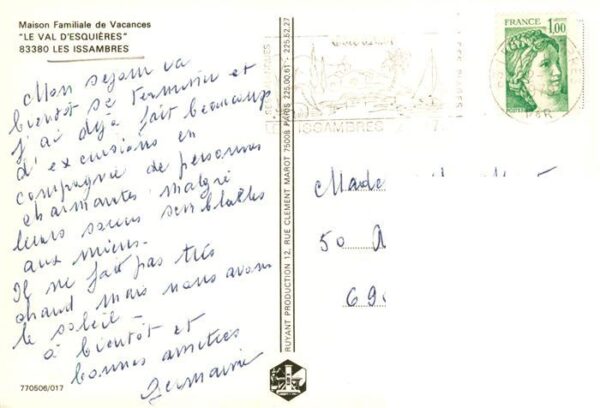 Maison Familiale de Vacances
"LE VAL D'ESQUIÈRES"
83380 LES ISSAMBRES
Mon séjour va
bientôt se terminer et
j'ai déjà fait beaucoup
d'excursions en
compagnie de personnes
charmantes malgré
leurs soucis semblables
aux miens.
Il ne fait pas très
chaud mais nous avons
le soleil -
à bientôt et
bonnes amitiés
Germaine
770506/017
RUYANT PRODUCTION 12, RUE CLEMENT MAROT 75008 PARIS 225.00.61 - 225.52.27
ISSAMBRES
FRANCE
1,00
POSTES
VAR
50
69